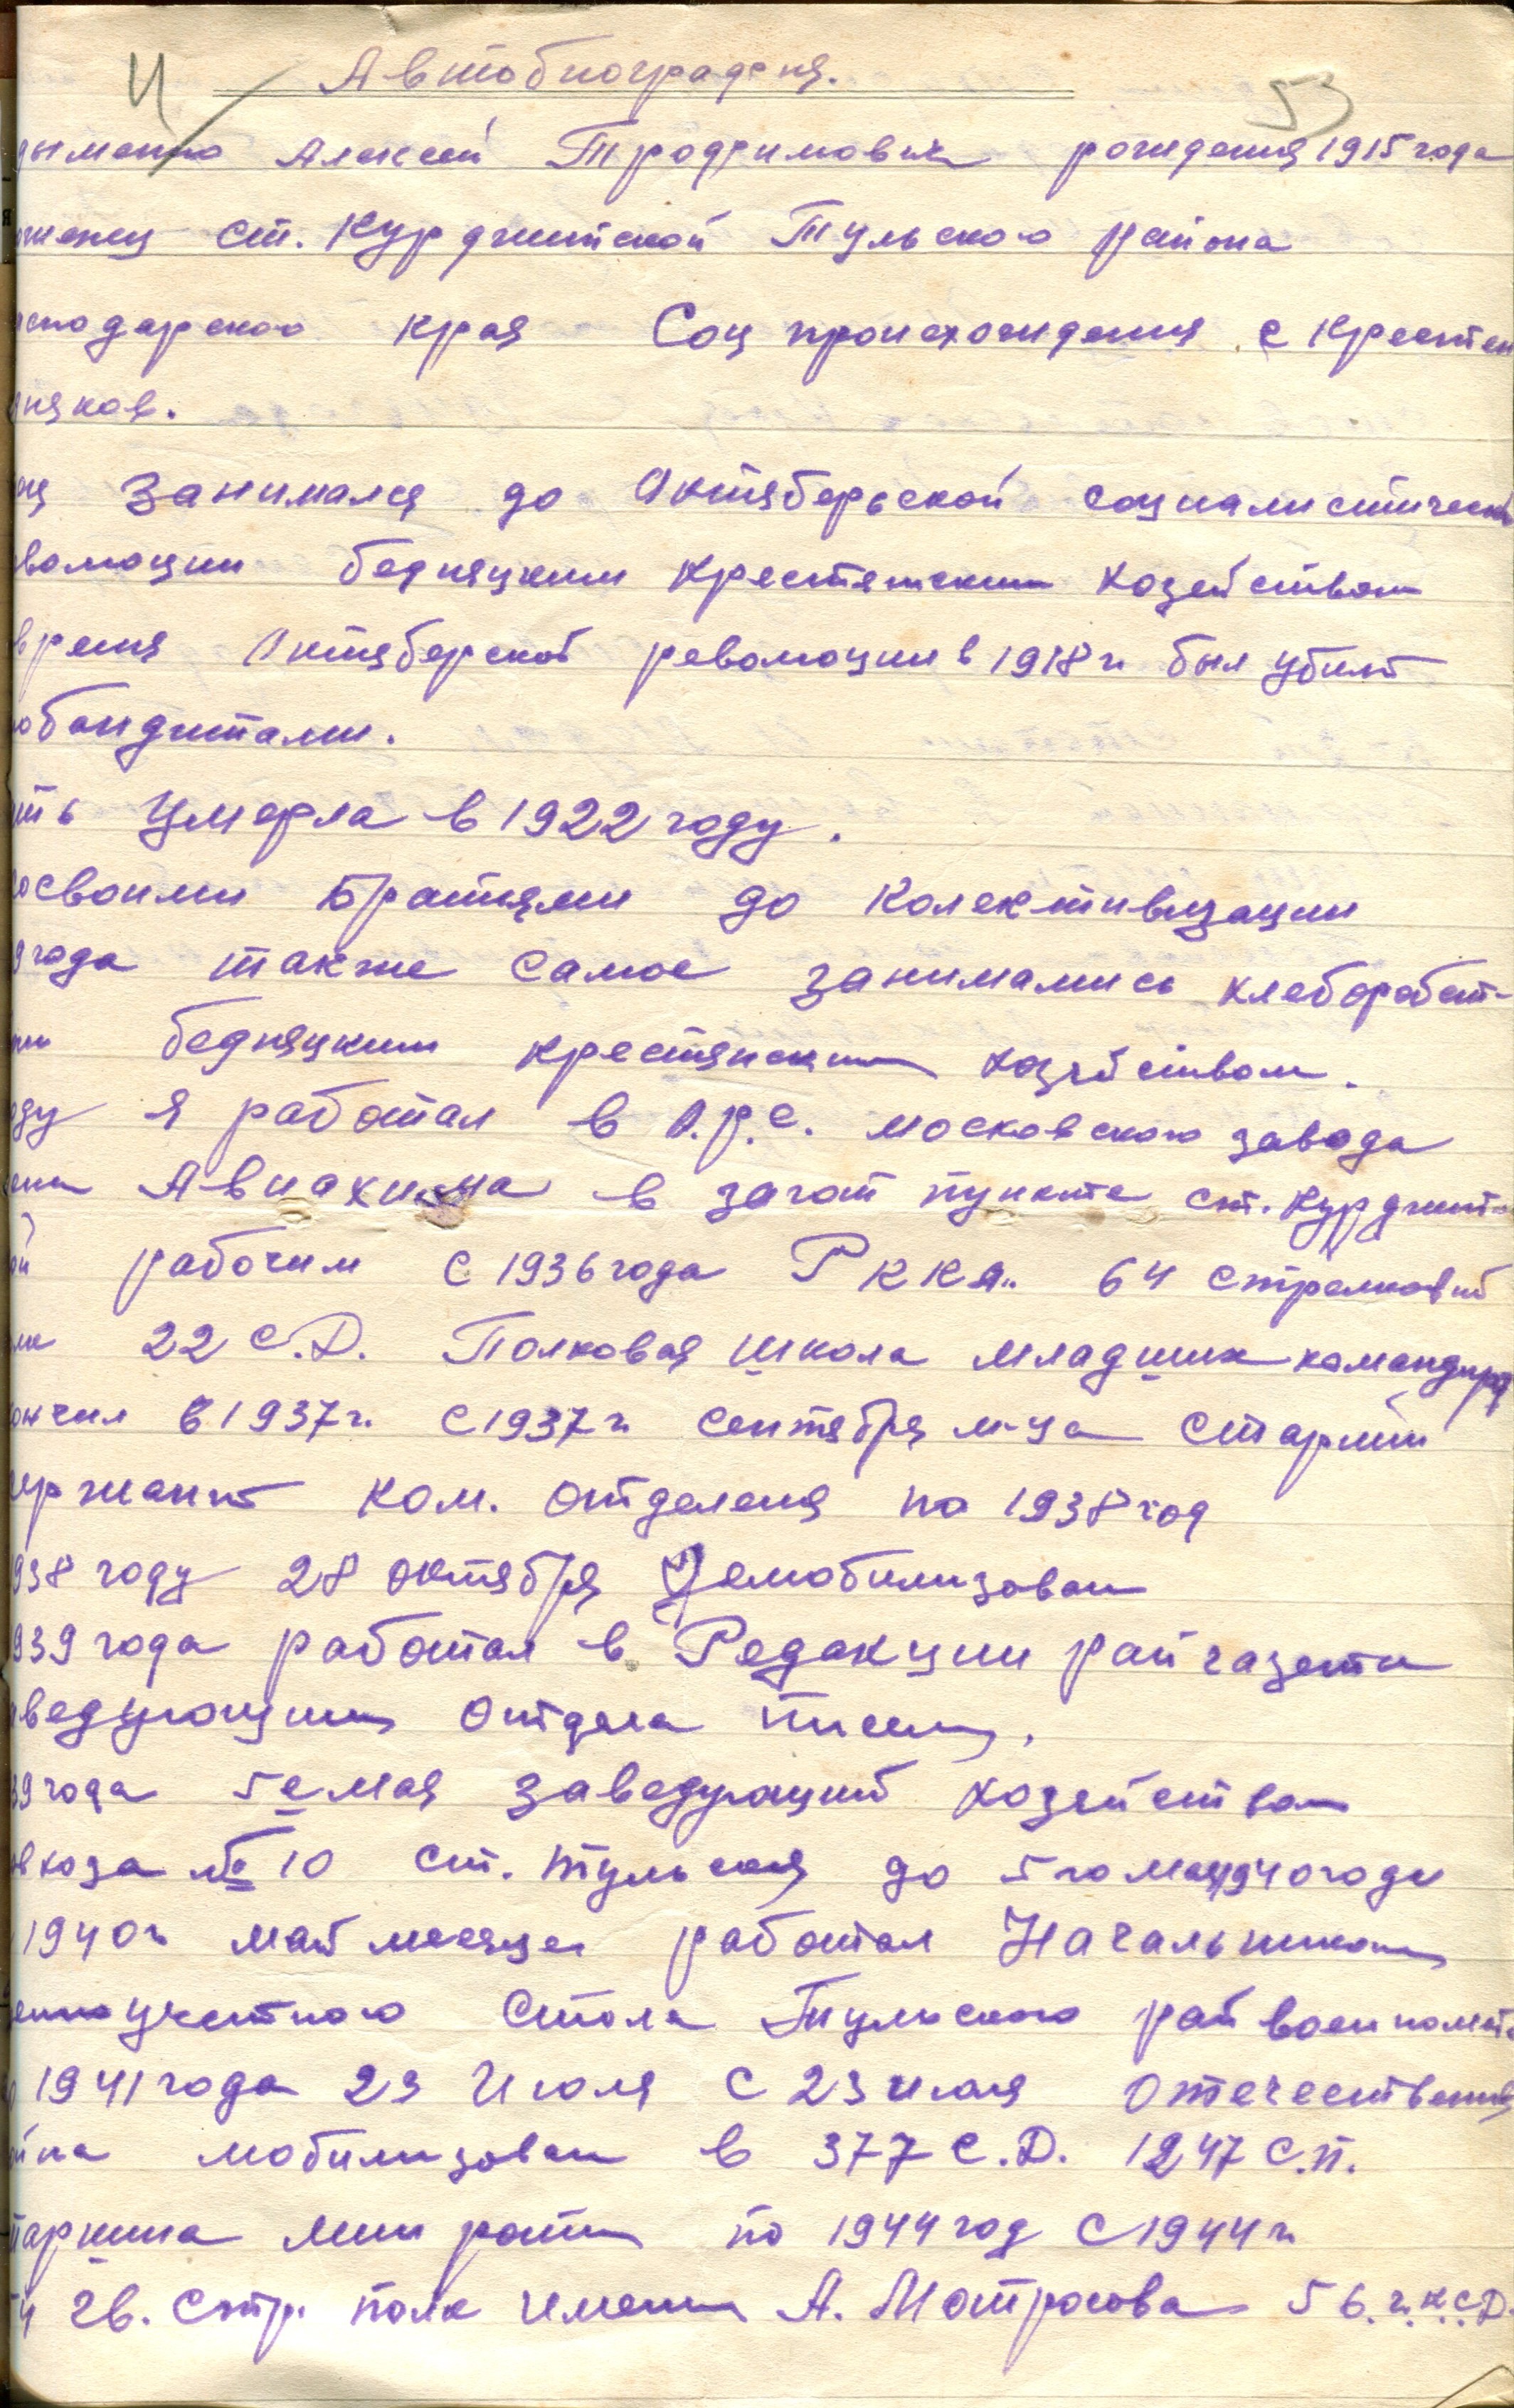 И 53
Автобиография.
дыменко Алексей Трофимович рождения 1915 года
женец ст. Курджипской Тульского района
снодарского края Соц происхождения с крестян
няков.
ец занимался до Октяберьской социалистической
волюции бедняцким крестянским хозейством
время Октяберской революции в 1918 г. был убит
обандитами.
ть Умерла в 1922 году.
освоими Братиями до Колективизации
9 года также самое занимались хлеборобст-
бедняцким крестянским хозяйством.
оду я работал в О.Р.С. московского завода
ени Авиахима в загот пункте ст. Курджипс-
ой рабочим с 1936 года РККА. 64 стрелковий
лк 22 С.Д. Полковая школа младших командиров
ончил в 1937 г. с 1937 г. сентября м-ца старший
ержант ком. отделеня по 1938 год
938 году 28 октября Демобилизован
939 года работал в Редакции рай газети
ведующим Отдела писем.
39 года 5е мая заведующий хозейством
вхоза № 10 ст. Тульская до 5го мая 1940 году
1940 г. май месяце работал Начальником
енно учетного стола Тульского рай военкомата
о 1941 года 23 Июля с 23 июля Отечественная
йна мобилизован в 377 С.Д. 1247 С.П.
таршина мин роти по 1944 год с 1944 г.
4 гв. стр. полк имени А. Матросова 56. г. к. с Д.